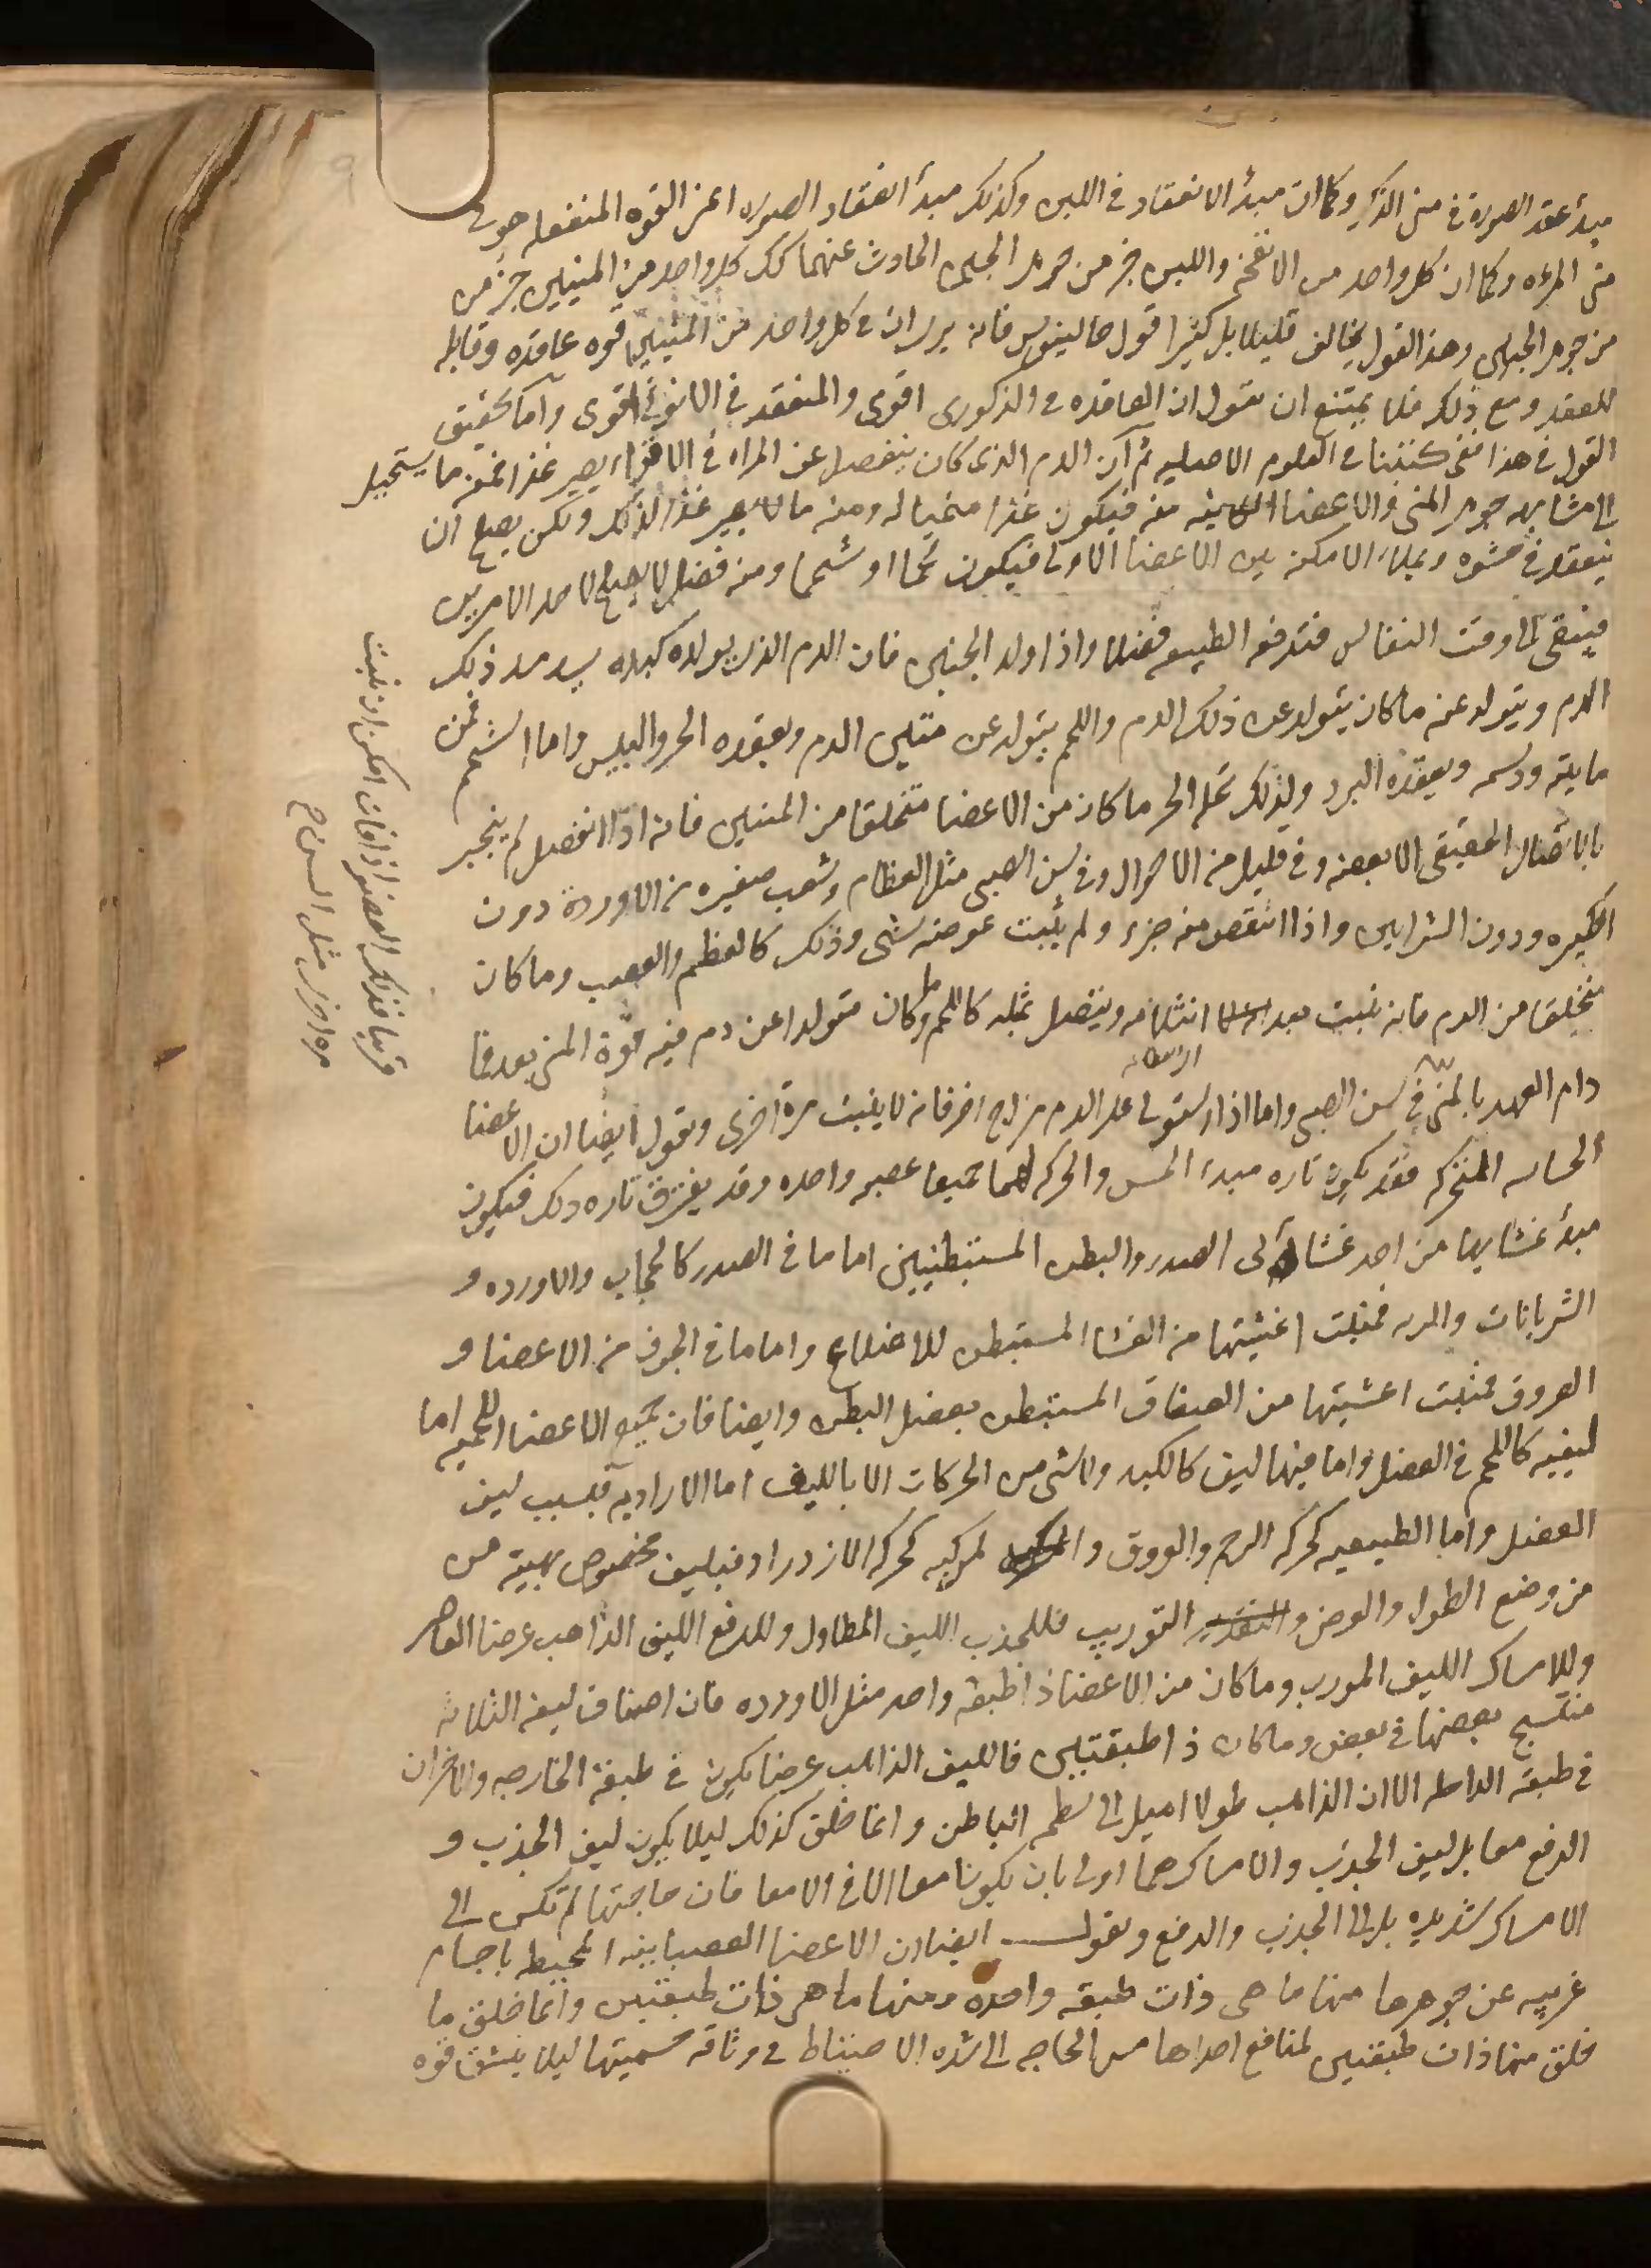 مبدأ عقد الصورة في منى الذكر وكما ان مبدأ الانعقاد في اللبن وكذلك مبدأ انعقاد الصوره اعنى القوه المنفعله هو في
منى المرءه وكما ان كل واحد من الانفحه واللبن جز من جوهر الجبن الحادث عنهما كك كل واحد من المنيين جز من
من جوهر الجنين وهذ القول يخالف قليلا بل كثيرا قول جالينوس فانه يرى ان في كل واحد من المنيين قوه عاقده وقابله
للعقد ومع ذلك فلا يمتنع ان نقول ان العاقده في الذكورى اقوى والمنعقد في الانوثى اقوى واما تحقيق
القول في هذا ففى كتبنا في العلوم الاصليه ثم ان الدم الذى كان ينفصل عن المراه في الاقراء يصير غذا فمنه ما يستحيل
الى مشابهه جوهر المنى والاعضا الكاينه منه فيكون غذا منميا له ومنه ما لا يصير غذا لذلك ولكن يصلح ان
ينعقد في حشوه ويملاء الامكنه بين الاعضا الاولى فيكون لحما او شحما ومنه فضل لا يصلح لاحد الامرين
فيبقى الى وقت النفاس فتدفعه الطبيعه فضلا واذا ولد الجنين فان الدم الذى يولده كبده يسد مسد ذلك
الدم ويتولد عنه ما كان يتولد عن ذلك الدم واللحم يتولد عن متين الدم ويعقده الحر واليبس واما الشحم فمن
مايته ودسمه ويعقده البرد ولذلك يحله الحر ما كان من الاعضا متخلقا من المنيين فانه اذا انفصل لم ينجبر
بالاتصال الحقيقى الا بعضه وفي قليل من الاحوال وفي سن الصبى مثل العظام وشعب صغيره من الاوردة دون
الكبيره ودون الشرايين واذا انتقص منه جزء ولم ينبت عوضه شى وذلك كالعظم والعصب وما كان
متخلقا من الدم فانه ينبت بعد انثلامه ويتصل بمثله كاللحم وما كان متولدا عن دم فيه قوة المنى بعد فما
دام العهد بالمنى في سن الصبى واما اذا استولى على الدم مزاج اخر فانه لا ينبت مرة اخرى ونقول ايضا ان الاعضا
الحساسه المتحركه فقد يكون تاره مبدء الحس والحركه لهما جميعا عصبه واحده وقد يفترق تاره ذلك فيكون
مبدأ غشايها من احد غشاى الصدر والبطن المستبطنيين اما ما في الصدر كالحجاب والاورده و
الشريانات والريه فمنبت اغشيتها من الغشا المستبطن للاضلاع واما ما في الجوف من الاعضا و
العروق فمنبت اغشيتها من الصفاق المستبطن بعضل البطن وايضا فان جميع الاعضا اللحميه اما
ليفيه كاللحم في العضل واما فيها ليف كالكبد ولا شى من الحركات الا بالليف اما الاراديه فبسبب ليف
العضل واما الطبيعيه كحركه الرحم والعروق والمركبه كحركه الازدراد فبليف مخصوص بهيئه من
من وضع الطول والعرض والتوريب فللجذب الليف المطاول وللدفع الليف الذاهب عرضا العاصر
وللامساك الليف المورب وما كان من الاعضا ذا طبقه واحد مثل الاورده فان اصناف ليفه الثلاثه
منتسج بعضها في بعض وما كان ذا طبقتين فالليف الذاهب عرضا يكون في طبقة الخارجه والاخران
في طبقة الداخله الا ان الذاهب طولا اميل الى سطحه الباطن وانما خلق كذلك ليلا يكون ليف الجذب و
الدفع معا بل ليف الجذب والامساك هما اولى بان يكونا معا الا في الامعا فان حاجتها لم تكن الى
الامساك شديده بل الى الجذب والدفع ونقول ايضا ان الاعضا العصبانيه المحيطه باجسام
غريبه عن جوهرها منها ما هى ذات طبقه واحده ومنها ما هى ذات طبقتين وانما خلق ما
خلق منها ذات طبقتين لمنافع احداها مس الحاجه الى شده الاحتياط في وثاقه جسميتها ليلا ينشق قوه
قريبا فذلك العضو اذا فات امكن ان ينبت
مره اخرى مثل السن